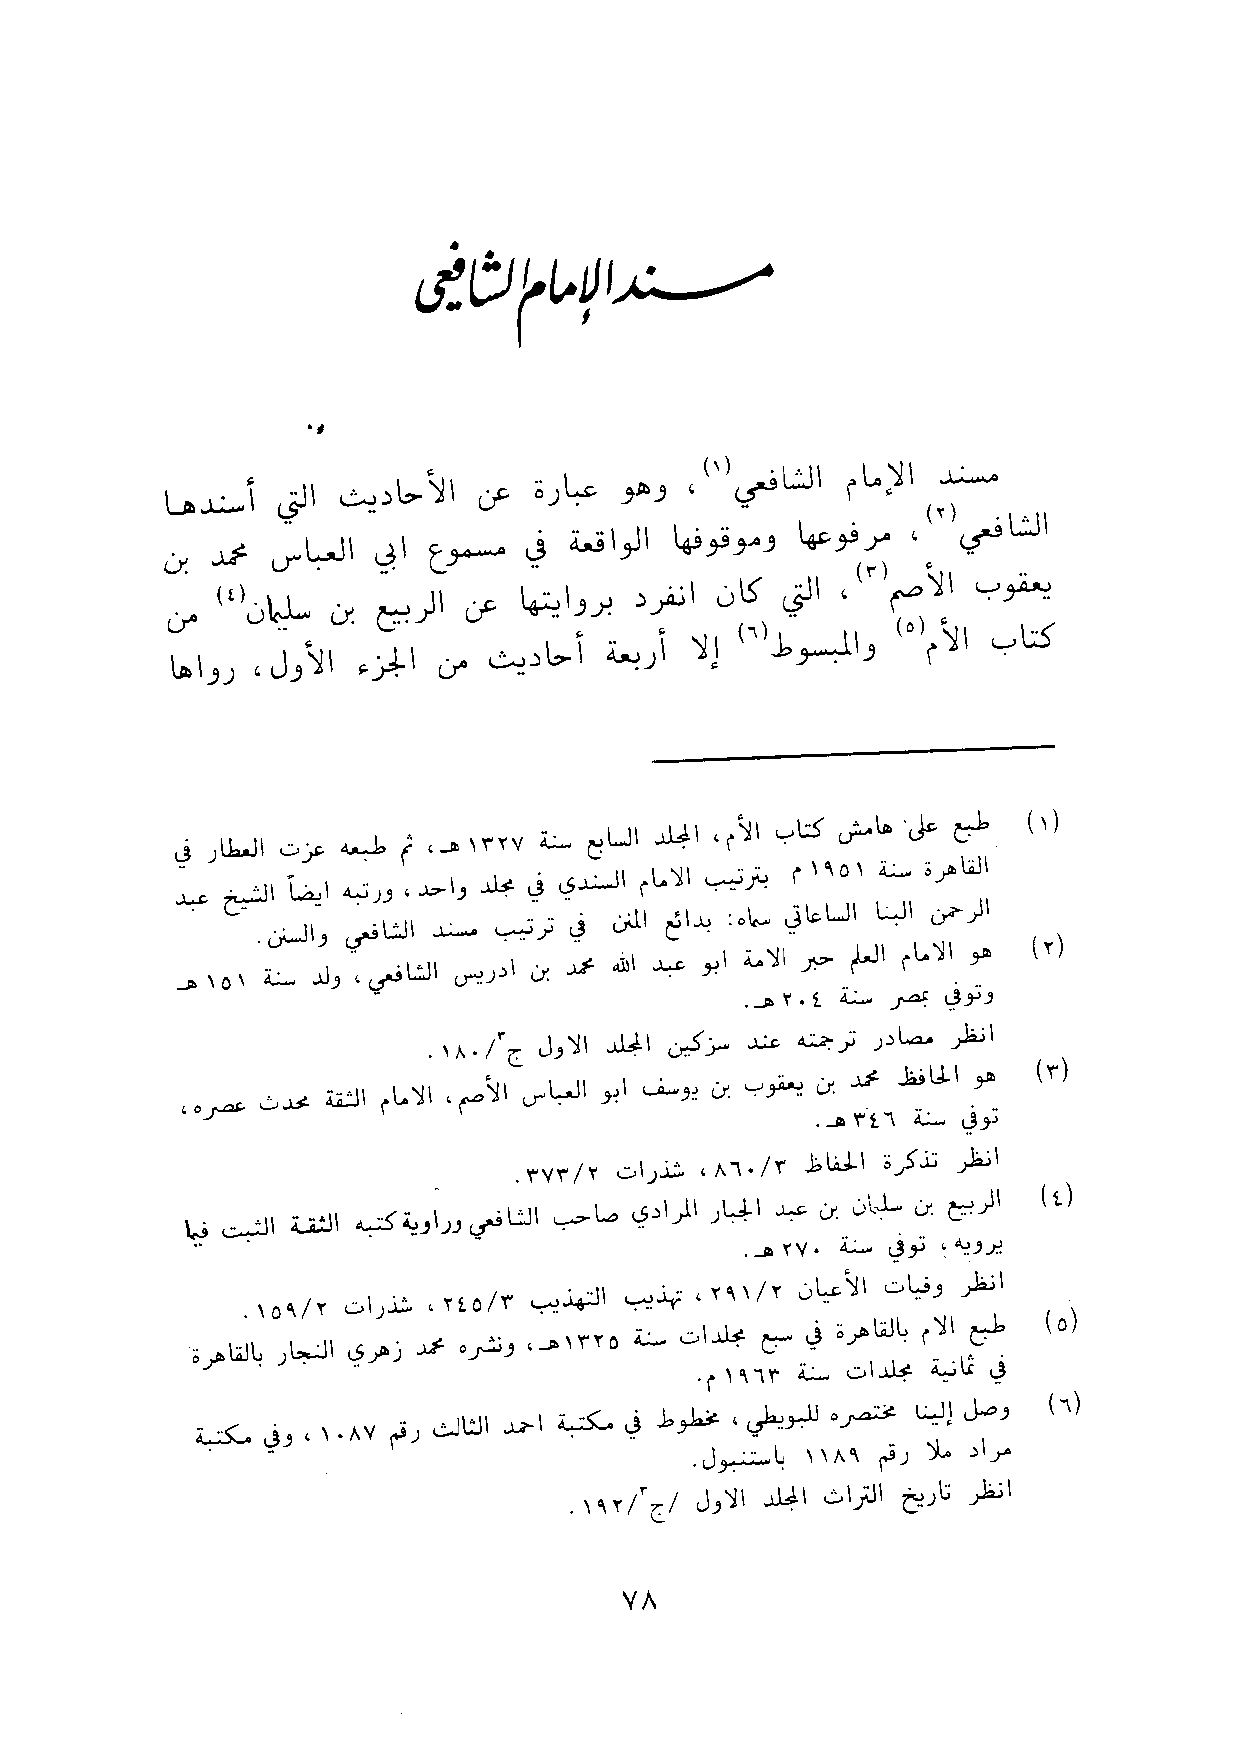 مسند الإمام الشافعي
مسند الإمام الشافعي(١)، وهو عبارة عن الأحاديث التي أسندها
الشافعي(٢)، مرفوعها وموقوفها الواقعة في مسموع ابي العباس محمد بن
يعقوب الأصم(٣)، التي كان انفرد بروايتها عن الربيع بن سليمان(٤) من
كتاب الأم(٥) والمبسوط(٦) إلا أربعة أحاديث من الجزء الأول، رواها
(١) طبع على هامش كتاب الأم، المجلد السابع سنة ١٣٢٧ هـ، ثم طبعه عزت العطار في
القاهرة سنة ١٩٥١ م بترتيب الامام السندي في مجلد واحد، ورتبه ايضاً الشيخ عبد
الرحمن البنا الساعاتي سماه: بدائع المنن في ترتيب مسند الشافعي والسنن.
(٢) هو الامام العلم حبر الامة ابو عبد الله محمد بن ادريس الشافعي، ولد سنة ١٥١ هـ
وتوفي بمصر سنة ٢٠٤ هـ.
انظر مصادر ترجمته عند سزكين المجلد الاول ج٣/١٨٠.
(٣) هو الحافظ محمد بن يعقوب بن يوسف ابو العباس الأصم، الامام الثقة محدث عصره،
توفي سنة ٣٤٦ هـ.
انظر تذكرة الحفاظ ٨٦٠/٣، شذرات ٣٧٣/٢.
(٤) الربيع بن سليمان بن عبد الجبار المرادي صاحب الشافعي وراوية كتبه الثقة الثبت فيما
يرويه، توفي سنة ٢٧٠ هـ.
انظر وفيات الأعيان ٢٩١/٢، تهذيب التهذيب ٢٤٥/٣، شذرات ١٥٩/٢.
(٥) طبع الام بالقاهرة في سبع مجلدات سنة ١٣٢٥ هـ، ونشره محمد زهري النجار بالقاهرة
في ثمانية مجلدات سنة ١٩٦٣ م.
(٦) وصل إلينا مختصره للبويطي، مخطوط في مكتبة احمد الثالث رقم ١٠٨٧، وفي مكتبة
مراد ملا رقم ١١٨٩ باستنبول.
انظر تاريخ التراث المجلد الاول /ج٣/١٩٢.
٧٨